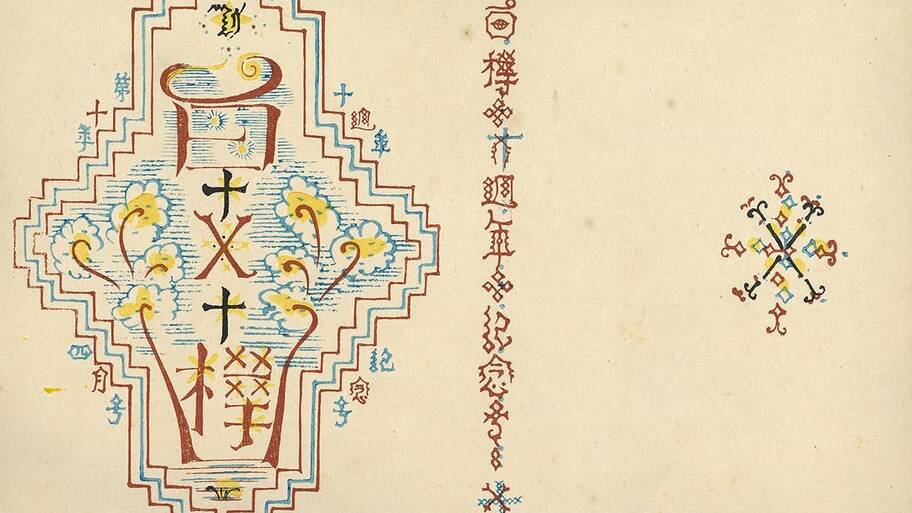 第十年
十週年
白
十
X
十
樺
四月号
記念号
白樺十週年記念号